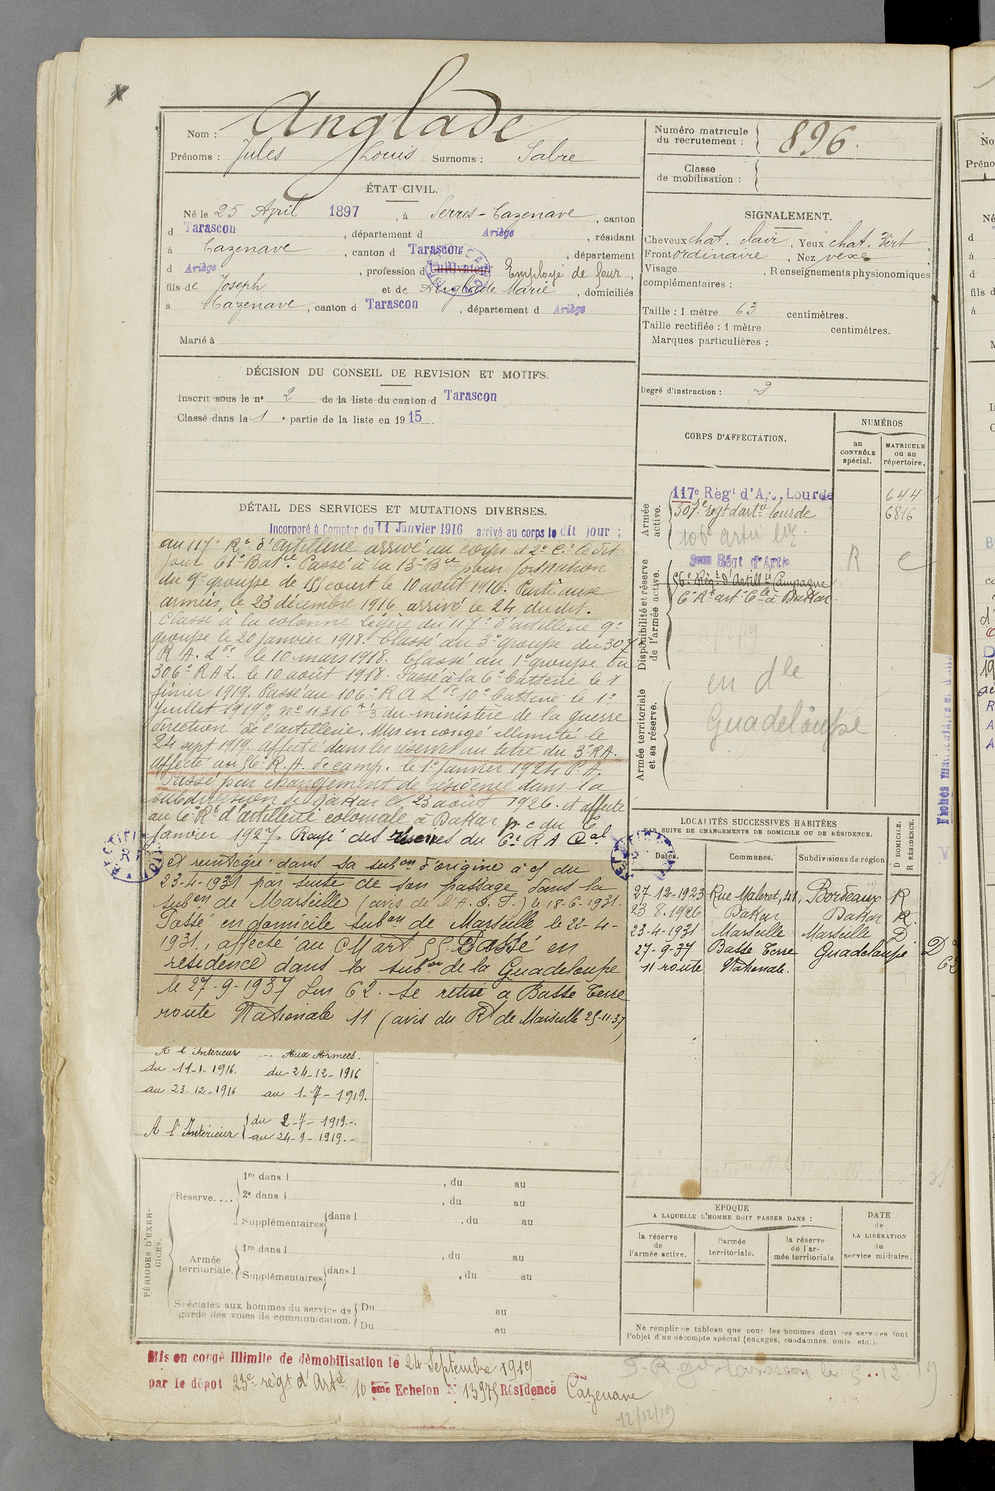 Anglade
Nom :
Prénoms : Jules Louis Surnoms : Sabre
Numéro matricule du recrutement : 896.
Classe de mobilisation :
ÉTAT CIVIL.
Né le 25 April 1897, à Serres-Cazenave, canton
d Tarascon, département d Ariège, résidant
à Cazenave, canton d Tarascon, département
d Ariège, profession d Cultivateur Employé de four,
fils de Joseph et de Anglade Marie, domiciliés
à Cazenave, canton d Tarascon, département d Ariège
Marié à
SIGNALEMENT.
Cheveux chat. clair, Yeux chat. vert
Front ordinaire, Nez vexe
Visage , Renseignements physionomiques
complémentaires :
Taille : 1 mètre 63 centimètres.
Taille rectifiée : 1 mètre centimètres.
Marques particulières :
Degré d'instruction : 2
DÉCISION DU CONSEIL DE REVISION ET MOTIFS.
Inscrit sous le n° 2 de la liste du canton d Tarascon
Classé dans la 1e partie de la liste en 1915.
CORPS D'AFFECTATION.
NUMÉROS
au CONTRÔLE spécial.
MATRICULE ou au répertoire.
Armée active.
117e Régt d'Art. Lourde 644
307e régt d'artie lourde 6816
106e artie lde
Disponibilité et réserve de l'armée active.
Régt d'Artie
56e Régt d'Artillie Campagne
6e Rt art Cle à Dakar
R C
Armée territoriale et sa réserve.
en dle
Guadeloupe
DÉTAIL DES SERVICES ET MUTATIONS DIVERSES.
Incorporé à Compter du 11 Janvier 1916 arrivé au corps le dit jour ;
au 117e Rt d'Artillerie arrivé au corps et 2e C. le dit
jour 61e Bie. Passé à la 13e Bie pour formation
du 9e groupe de 155 court le 10 août 1916. Parti aux
armées, le 23 décembre 1916, arrivé le 24 du dit.
Classé à la colonne légère du 117e d'artillerie 9e
groupe le 20 janvier 1918. Classé au 3e groupe du 307
R.A.L. le 10 mars 1918. Classé au 1e groupe du
306e RAL. le 10 août 1918. Passé à la 6e batterie le 1
février 1919. Passé au 106e R A L 10e batterie le 1er
Juillet 1919, n° 11316 3 du ministère de la guerre
direction de l'artillerie. Mis en congé illimité le
24 sept 1919, affecté dans les réserves au titre du 3e RA.
affecté au 56e R.A. de camp. le 1er janvier 1924 P.A.
Passé par changement de résidence dans la
subdivision de Dakar le 23 août 1926. et affecté
au 6e Rt d'artillerie coloniale à Dakar p. c du 1er
Janvier 1927. Rayé des réserves du 6e R A Cal
et réintégré dans sa subon d'origine à c/ du
23-4-1931 par suite de son passage dans la
subon de Marseille (avis de l'A.O.F.) le 18-6-1931.
Passé en domicile subon de Marseille le 22-4-
1931, affecté au CM art 55 Passé en
résidence dans la subon de la Guadeloupe
le 27-9-1937 Lin 62. se retire à Basse Terre
route Nationale 11 (avis du Rt de Marseille 25-11-37)
LOCALITÉS SUCCESSIVES HABITÉES
PAR SUITE DE CHANGEMENTS DE DOMICILE OU DE RÉSIDENCE.
Dates. Communes. Subdivisions de région. D DOMICILE. R RÉSIDENCE.
27-12-1923 Rue Maleret, 41. Bordeaux R
23 8.1926 Dakar Dakar R.
23-4-1931 Marseille Marseille D
27-9-37 Basse Terre Guadeloupe D
11 route Nationale.
A l'Intérieur Aux Armées.
du 11-1-1916. du 24-12-1916
au 23.12-1916 au 1-7-1919.
A l'Intérieur du 2-7-1919.-
au 24-9-1919.-
PÉRIODES D'EXERCICES.
Réserve.... 1re dans l , du au
2e dans l , du au
Supplémentaires dans l , du au
Armée territoriale. 1re dans l , du au
Supplémentaires dans l , du au
Spéciales aux hommes du service de garde des voies de communication. Du au
Du au
EPOQUE
A LAQUELLE L'HOMME DOIT PASSER DANS :
la réserve de l'armée active.
l'armée territoriale.
la réserve de l'armée territoriale.
DATE de LA LIBÉRATION du service militaire.
Ne remplir ce tableau que pour les hommes dont les services font
l'objet d'un décompte spécial (engagés, condamnés, omis, etc.).
Mis en congé illimité de démobilisation le 24 Septembre 1919
par le dépôt 23e régt d'Artie 10 ème Echelon N° 13975 Résidence Cazenave
12/12/19